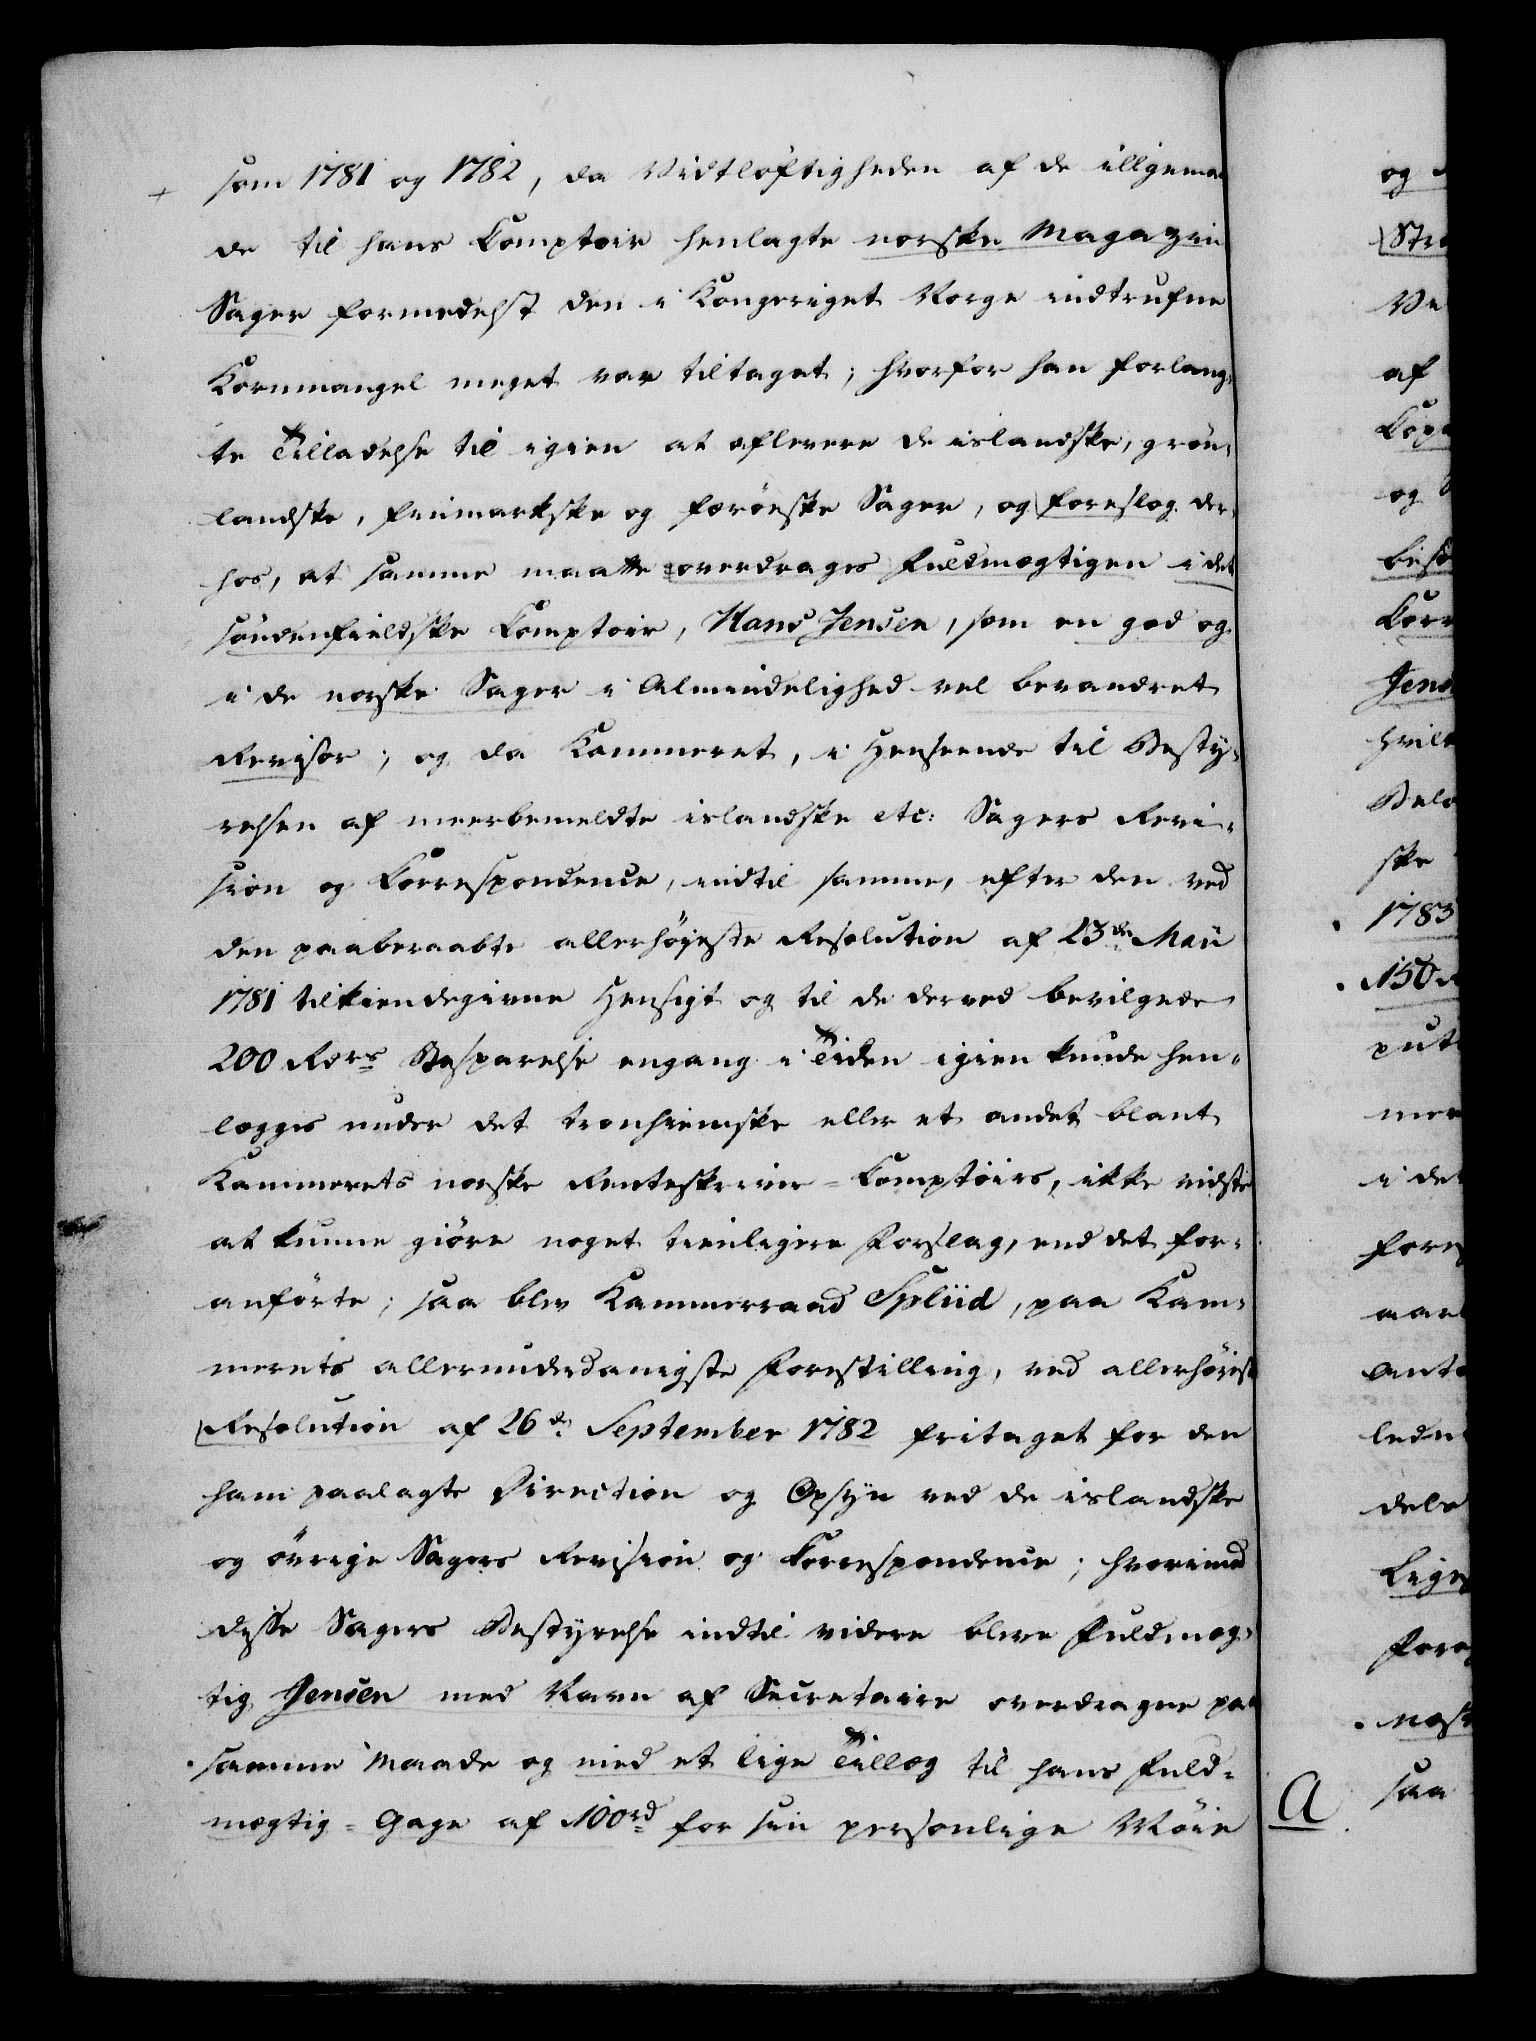 som 1781 og 1782, da Vidtløftigheden af de illigema-
de til hans Comptoir henlagte norske Magazin
Sager formedelst den i Kongeriget Norge indtrufne
Kornmangel meget var tiltaget; hvorfor han forlang-
te Tilladelse til igien at aflevere de islandske, grön-
landske, finmarkske og færöeske Sager, og foreslog der-
hos, at samme maatte overdrages Fuldmægtigen i det
söndenfieldske Comptoir, Hans Jensen, som en god og
i de norske Sager i Almindelighed vel bevandret
Revisor; og da Kammeret, i Henseende til Besty-
relsen af meerbemeldte islandske etc: Sagers Revi-
sion og Correspondence, indtil samme, efter den ved
den paaberaabte allerhöjeste Resolution af 23de Maii
1781 tilkiendegivne Hensigt og til de derved bevilgede
200 Rdrs Besparelse engang i Tiden igien kunde hen-
lægges under det tronhiemske eller et andet blant
Kammerets norske Renteskriver-Comptoirs, ikke vidste
at kunne giöre noget tienligere Forslag, end det for-
anförte; saa blev Kammerraad Spliid, paa Kam-
merets allerunderdanigste Forestilling, ved allerhöieste
Resolution af 26de September 1782 fritaget for den
ham paalagte Direction og Opsyn ved de islandske
og övrige Sagers Revision og Correspondence; hvorimod
disse Sagers Bestyrelse indtil videre bleve Fuldmæg-
tig Jensen med Navn af Secretaire overdragne paa
samme Maade og med et lige Tillæg til hans Fuld-
mægtig-Gage af 100 rd for sin personlige Möie
og
Ve
af
og
ske
1783
150
i det
saa
A